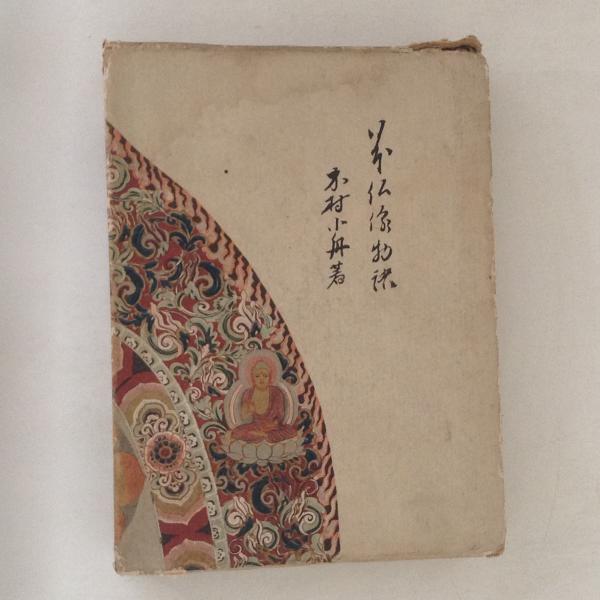 仏像物語
木村小舟著